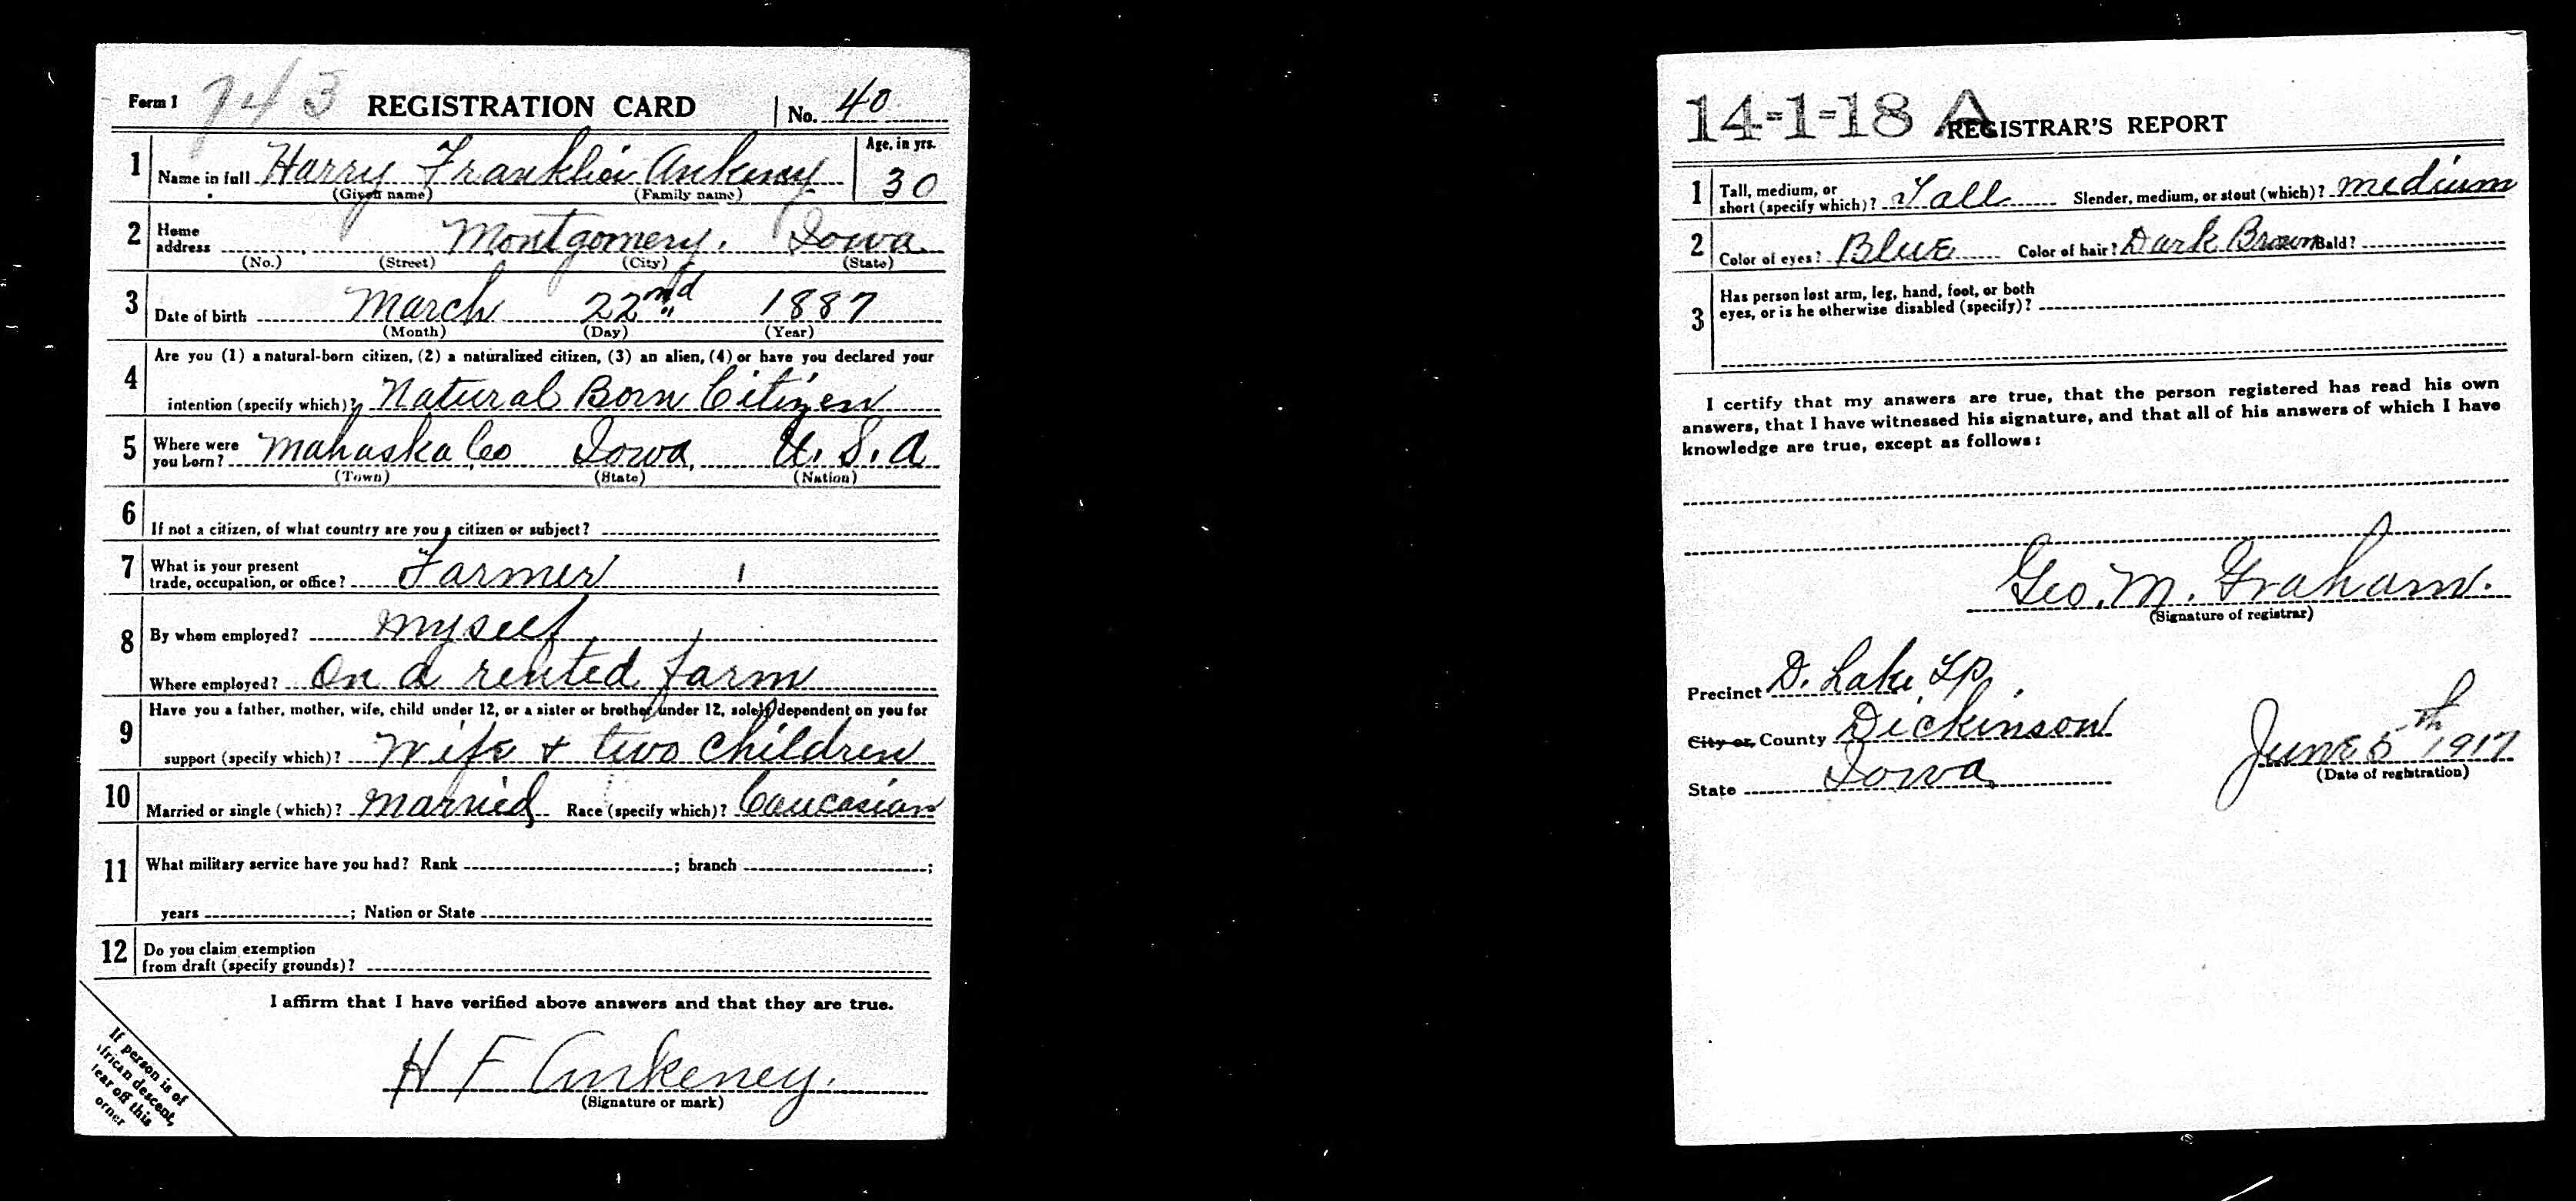 Form 1 743 REGISTRATION CARD No. 40
1 Name in full Harry Franklin Ankeny Age, in yrs. 30
(Given name) (Family name)
2 Home address Montgomery, Iowa
(No.) (Street) (City) (State)
3 Date of birth March 22nd 1887
(Month) (Day) (Year)
4 Are you (1) a natural-born citizen, (2) a naturalized citizen, (3) an alien, (4) or have you declared your
intention (specify which)? Natural Born Citizen
5 Where were you born? Mahaska Co Iowa, U. S. A
(Town) (State) (Nation)
6 If not a citizen, of what country are you a citizen or subject?
7 What is your present
trade, occupation, or office? Farmer
8 By whom employed? myself
Where employed? On a rented farm
9 Have you a father, mother, wife, child under 12, or a sister or brother under 12, solely dependent on you for
support (specify which)? Wife + two children
10 Married or single (which)? Married Race (specify which)? Caucasian
11 What military service have you had? Rank ; branch ;
years ; Nation or State
12 Do you claim exemption
from draft (specify grounds)?
I affirm that I have verified above answers and that they are true.
H F Ankeney.
(Signature or mark)
If person is of
African descent,
tear off this
corner
14-1-18 A REGISTRAR'S REPORT
1 Tall, medium, or
short (specify which)? Tall Slender, medium, or stout (which)? medium
2 Color of eyes? Blue Color of hair? Dark Brown Bald?
3 Has person lost arm, leg, hand, foot, or both
eyes, or is he otherwise disabled (specify)?
I certify that my answers are true, that the person registered has read his own
answers, that I have witnessed his signature, and that all of his answers of which I have
knowledge are true, except as follows:
Geo. M. Graham.
(Signature of registrar)
Precinct D. Lake Tp.
City or County Dickinson
State Iowa
June 5th 1917
(Date of registration)